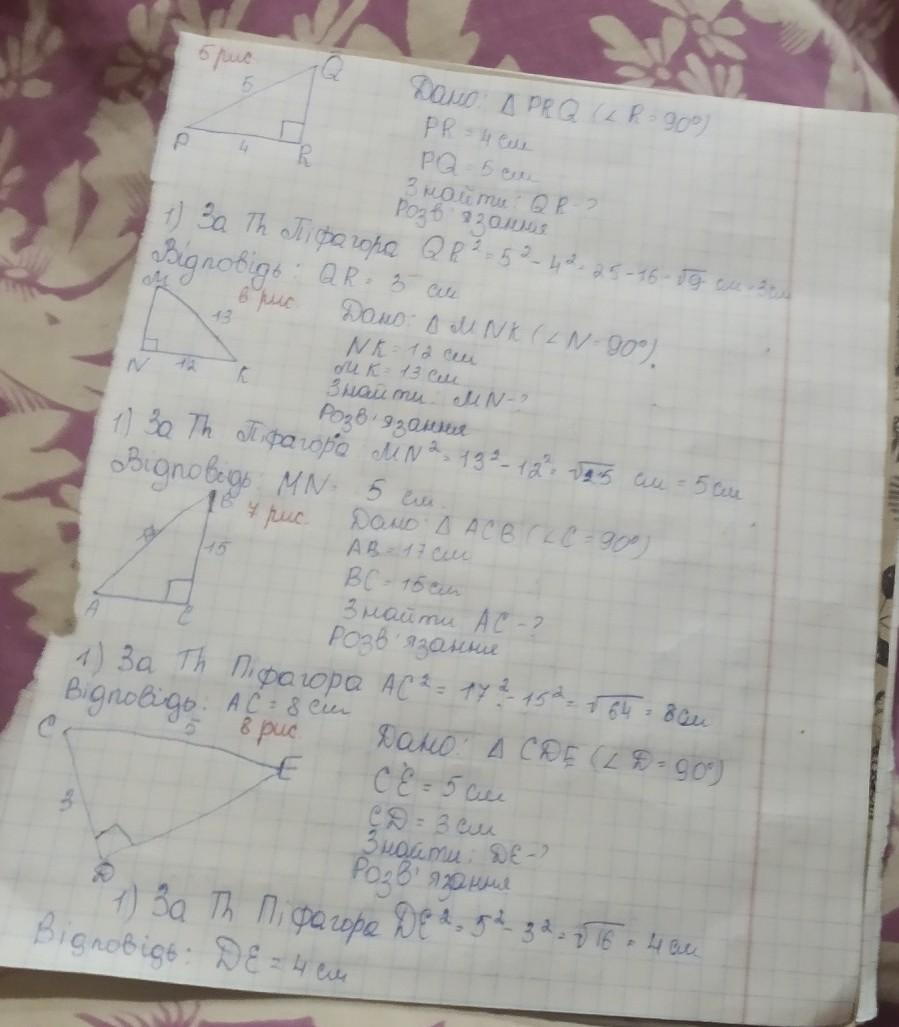 5 рис
Q
5
P
4
R
Дано: △ PRQ (∠R=90°)
PR = 4 см
PQ = 5 см
Знайти: QR-?
Розв'язання
1) За Th Піфагора QR² = 5² - 4² = 25 - 16 = √9 см = 3см
Відповідь: QR = 3 см
M
6 рис
13
N
12
K
Дано: △ MNK (∠N=90°).
NK = 12 см
MK = 13 см
Знайти: MN-?
Розв'язання
1) За Th Піфагора MN² = 13² - 12² = √25 см = 5см
Відповідь: MN = 5 см.
B
7 рис.
15
A
C
Дано: △ ACB (∠C=90°)
AB = 17 см
BC = 15 см
Знайти AC-?
Розв'язання
1) За Th Піфагора AC² = 17² - 15² = √64 = 8см
Відповідь: AC = 8 см
C
5
8 рис.
E
3
D
Дано: △ CDE (∠D=90°)
CE = 5 см
CD = 3 см
Знайти: DE-?
Розв'язання
1) За Th Піфагора DE² = 5² - 3² = √16 = 4 см
Відповідь: DE = 4 см